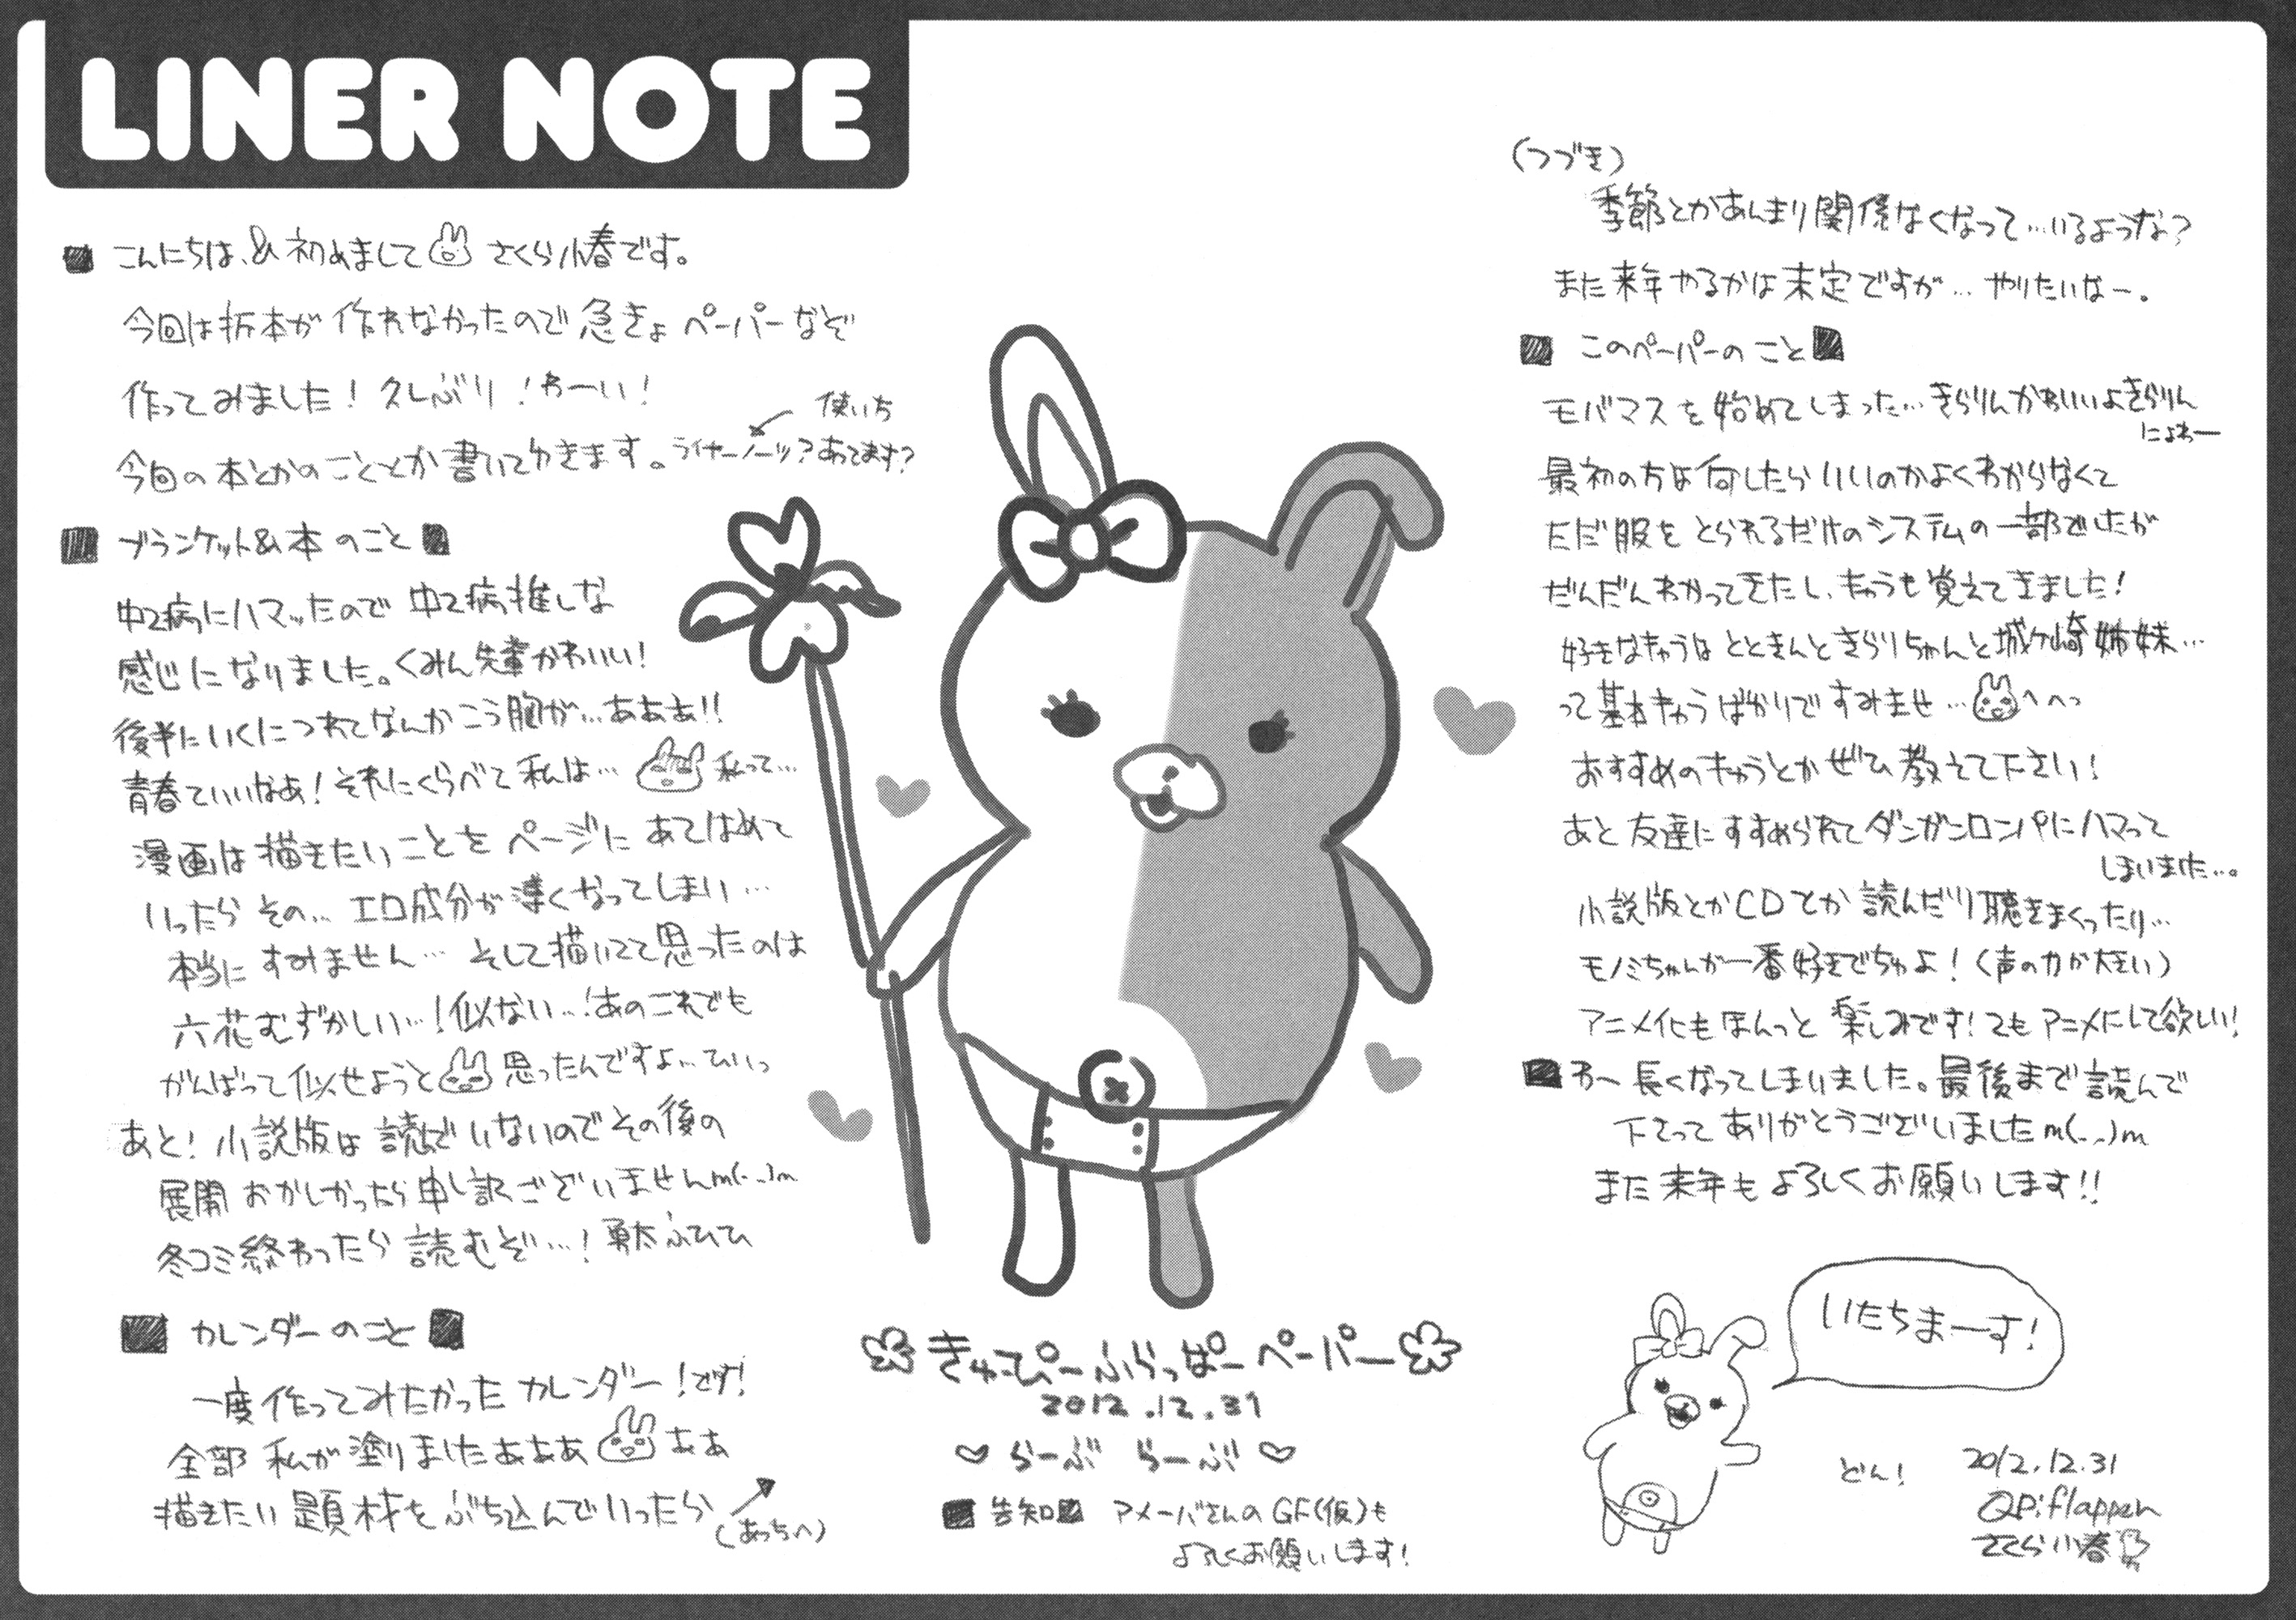 LINER NOTE
■ こんにちは、&初めまして さくら小春です。
今回は折本が作れなかったので急きょペーパーなぞ
作ってみました！久しぶり！わーい！
今回の本とかのこととか書いてゆきます。ライナーノーツ？あってます？
使いち
■ ブランケット&本のこと ■
中2病にハマッたので中2病推しな
感じになりました。くみん先輩かわいい！
後半にいくにつれてなんかこう胸が…あああ!!
青春ていいなあ！それにくらべて私は… 私って…
漫画は描きたいことをページにあてはめて
いったらその… エロ成分が薄くなってしまい…
本当にすみません… そして描いてて思ったのは
六花むずかしい…！似ない…！あのこれでも
がんばって似せようと思ったんですよ…ひいっ
あと！小説版は読んでいないのでその後の
展開おかしかったら申し訳ございませんm(_ _)m
冬コミ終わったら読むぞ…！勇太ふひひ
■ カレンダーのこと ■
一度作ってみたかったカレンダー！です！
全部私が塗りましたぁああ ああ
描きたい題材をぶち込んでいったら
(あっちへ)
きゅーぴーふらっぱーペーパー
2012.12.31
♡ らーぶ らーぶ ♡
■ 告知 ■ アメーバさんのGF(仮)も
よろしくお願いします！
(つづき)
季節とかあんまり関係なくなって…いるような？
また来年やるかは未定ですが… やりたいなー。
■ このペーパーのこと ■
モバマスを始めてしまった…きらりんかわいいよきらりん
にょわー
最初の方は何したらいいのかよくわからなくて
ただ服をとられるだけのシステムの一部でしたが
だんだんわかってきたし、キャラも覚えてきました！
好きなキャラはとときんときらりちゃんと城ヶ崎姉妹…
って基本キャラばかりですみませ… へへっ
おすすめのキャラとかぜひ教えて下さい！
あと友達にすすめられてダンガンロンパにハマって
しまいました…。
小説版とかCDとか読んだり聴きまくったり…
モノミちゃんが一番好きでちゅよ！(声の力が大きい)
アニメ化もほんっと楽しみです！2もアニメにして欲しい！
■ わー長くなってしまいました。最後まで読んで
下さってありがとうございましたm(_ _)m
また来年もよろしくお願いします!!
いたちまーす！
どん！
2012.12.31
QP:flapper
さくら小春